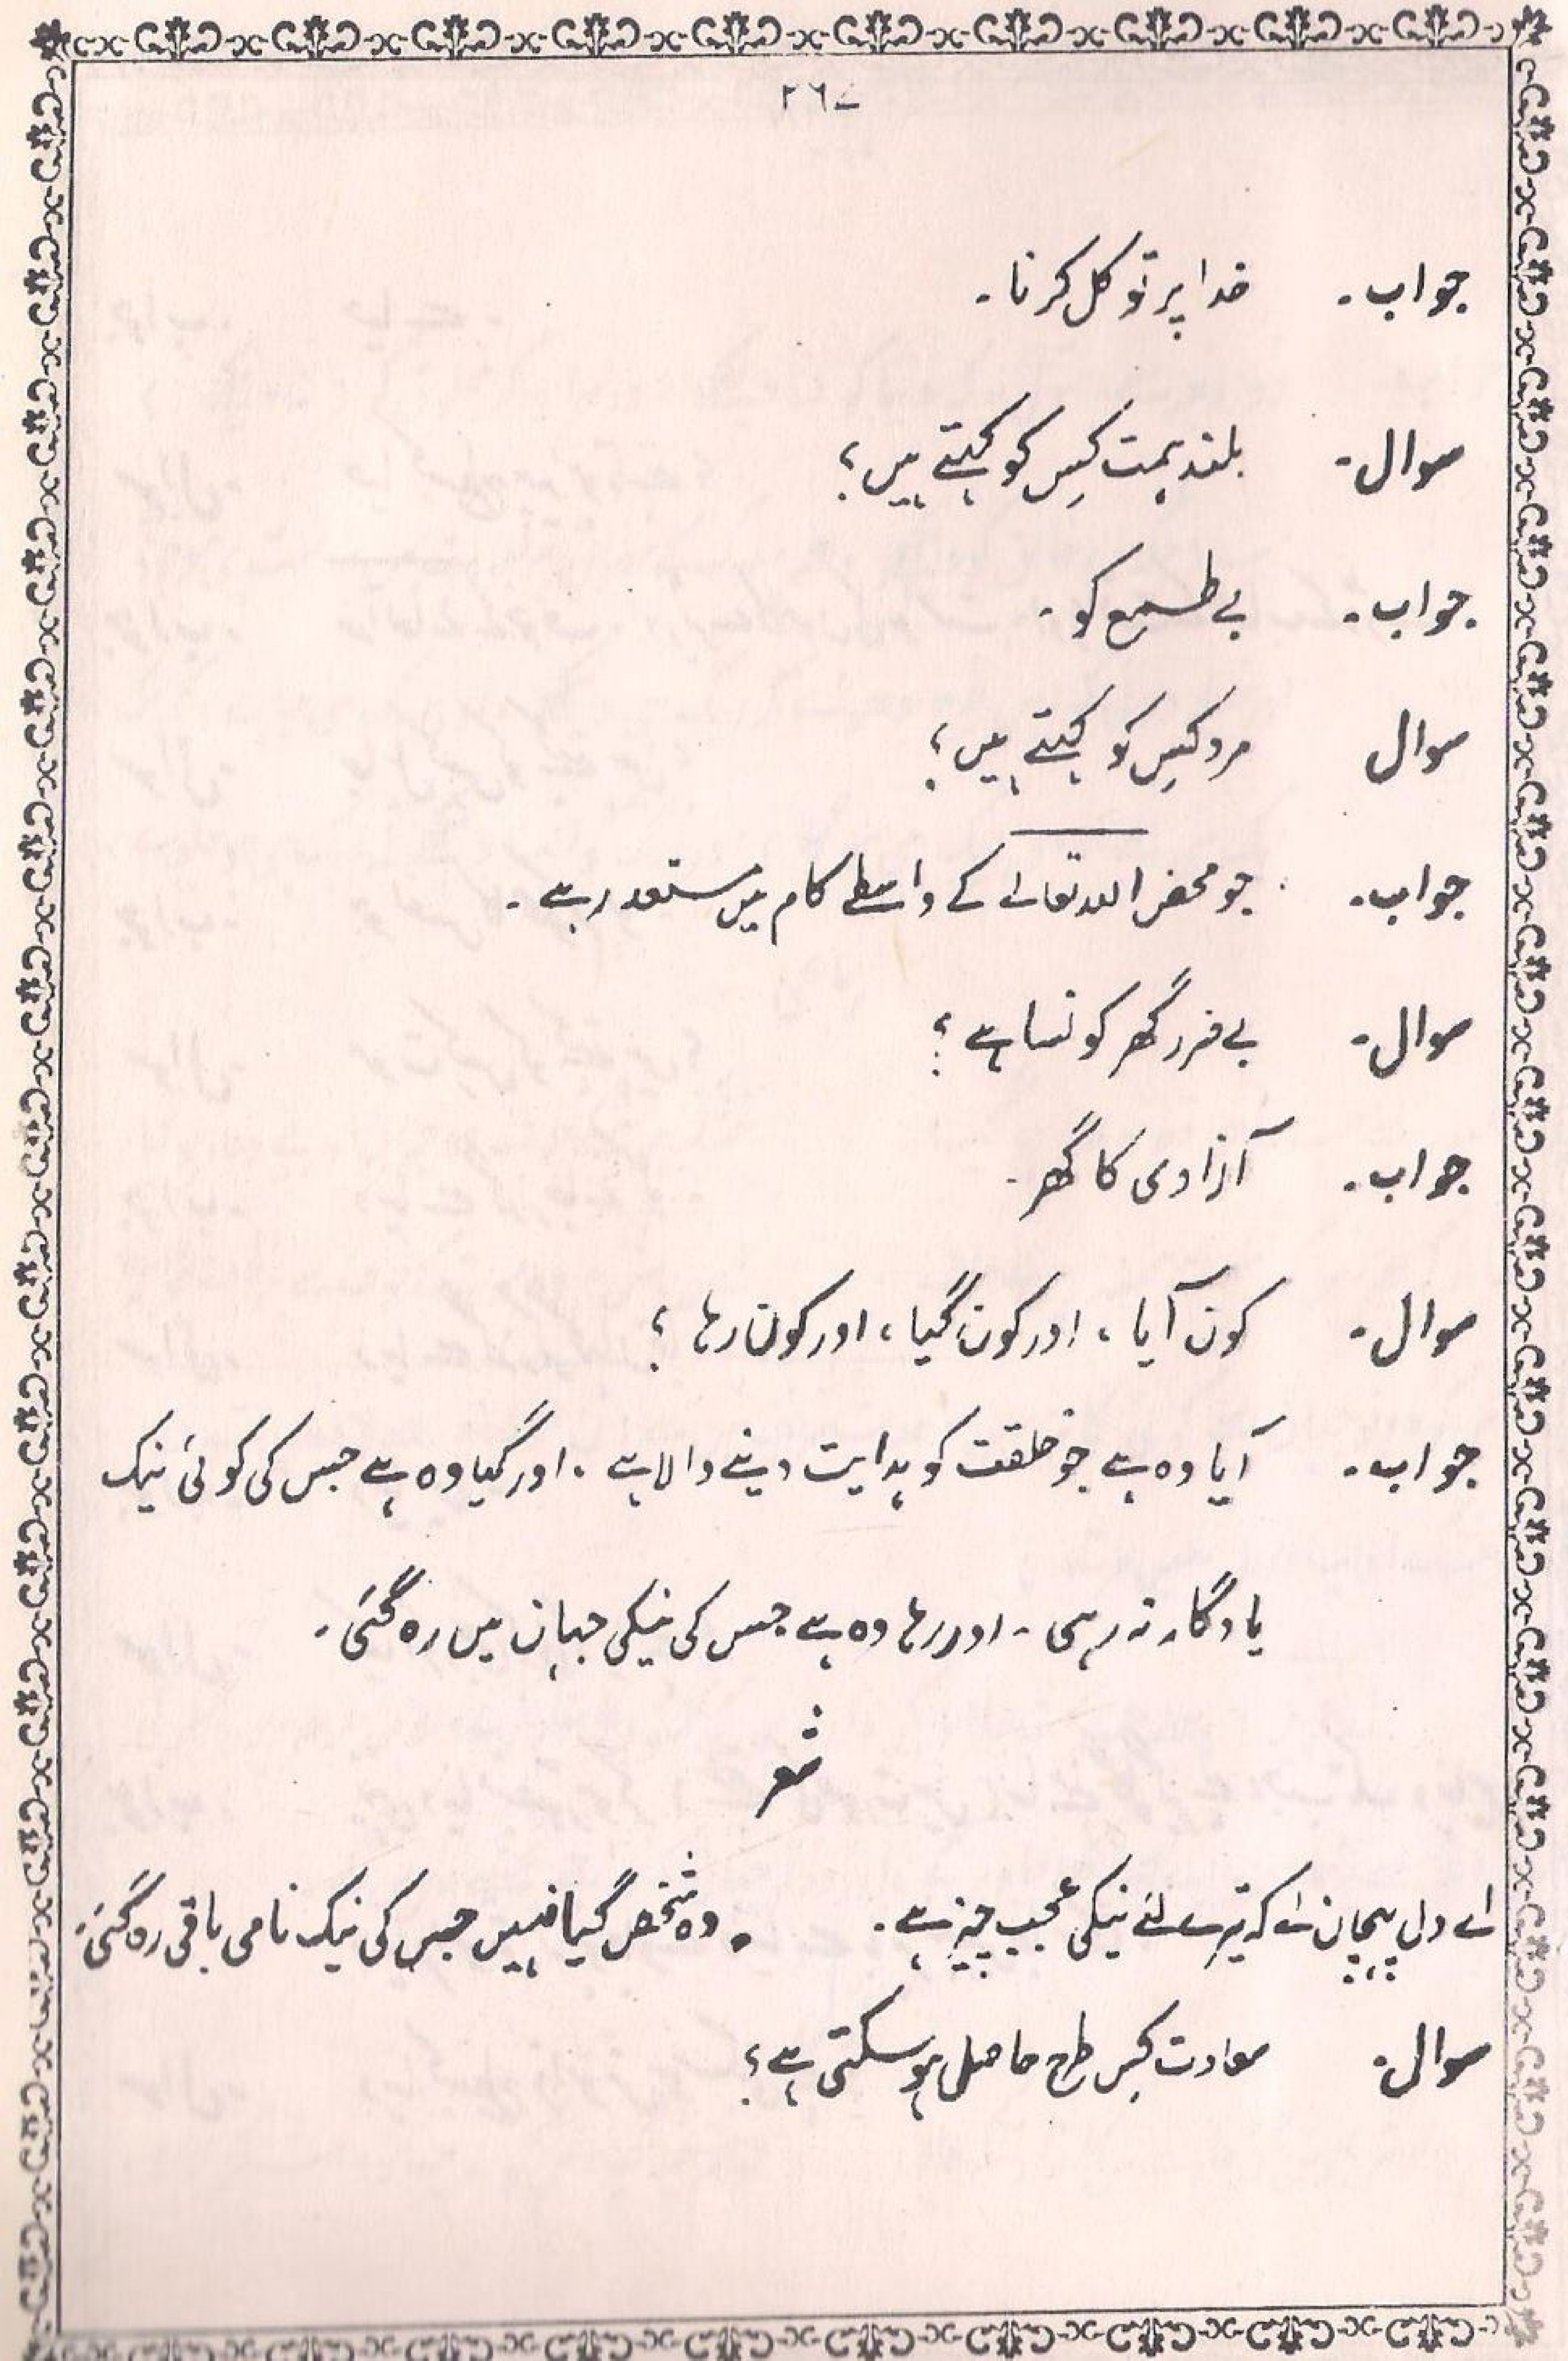 ۲۶۷
جواب۔ خدا پر توکل کرنا۔
سوال۔ بلند ہمت کِس کو کہتے ہیں؟
جواب۔ بے طمع کو۔
سوال مرد کِس کو کہتے ہیں؟
جواب۔ جو محض اللہ تعالےٰ کے واسطے کام میں مستعد رہے۔
سوال۔ بے ضرر گھر کونسا ہے؟
جواب۔ آزادی کا گھر۔
سوال۔ کون آیا، اور کون گیا، اور کون رہا؟
جواب۔ آیا وہ ہے جو خلقت کو ہدایت دینے والا ہے۔ اور گیا وہ ہے جس کی کوئی نیک
یادگار نہ رہی۔ اور رہا وہ ہے جس کی نیکی جہان میں رہ گئی۔
شعر
اے دل پہچان لے کہ تیرے لئے نیکی عجیب چیز ہے۔ • وہ شخص گیا نہیں جس کی نیک نامی باقی رہ گئی۔
سوال۔ سعادت کِس طرح حاصل ہو سکتی ہے؟